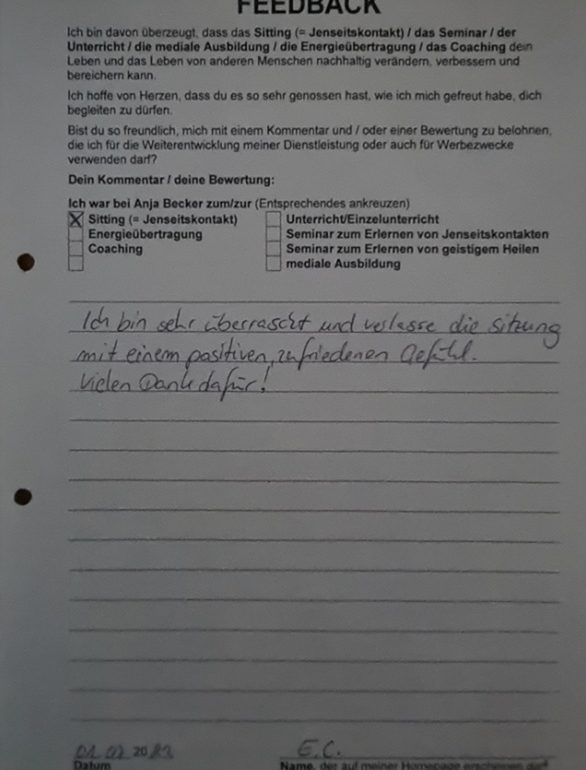 FEEDBACK
Ich bin davon überzeugt, dass das Sitting (= Jenseitskontakt) / das Seminar / der
Unterricht / die mediale Ausbildung / die Energieübertragung / das Coaching dein
Leben und das Leben von anderen Menschen nachhaltig verändern, verbessern und
bereichern kann.
Ich hoffe von Herzen, dass du es so sehr genossen hast, wie ich mich gefreut habe, dich
begleiten zu dürfen.
Bist du so freundlich, mich mit einem Kommentar und / oder einer Bewertung zu belohnen,
die ich für die Weiterentwicklung meiner Dienstleistung oder auch für Werbezwecke
verwenden darf?
Dein Kommentar / deine Bewertung:
Ich war bei Anja Becker zum/zur (Entsprechendes ankreuzen)
X Sitting (= Jenseitskontakt) Unterricht/Einzelunterricht
Energieübertragung Seminar zum Erlernen von Jenseitskontakten
Coaching Seminar zum Erlernen von geistigem Heilen
mediale Ausbildung
Ich bin sehr überrascht und verlasse die Sitzung
mit einem positiven, zufriedenen Gefühl.
Vielen Dank dafür!
E.C.
Datum Name, der auf meiner Homepage erscheinen darf